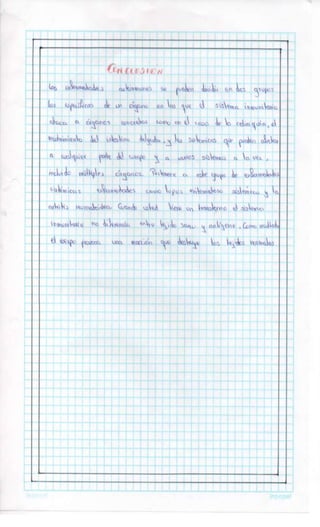 CONCLUSION
Las enfermedades autoinmunes se pueden dividir en dos grupos:
las específicas de un órgano en las que el sistema inmunitario
ataca a órganos concretos como en el caso de la celiaquía, el
del intestino delgado, y las sistémicas que pueden afectar
a cualquier parte del cuerpo y a varios sistemas a la vez,
incluido múltiples órganos. Pertenece a este grupo de enfermedades
sistémicas enfermedades como lupus eritematoso sistémico y la
artritis reumatoidea. Cuando usted tiene un trastorno el sistema
inmunitario no diferencia entre tejido sano y antígenos. Como resultado
el cuerpo una reacción que destruye los tejidos normales